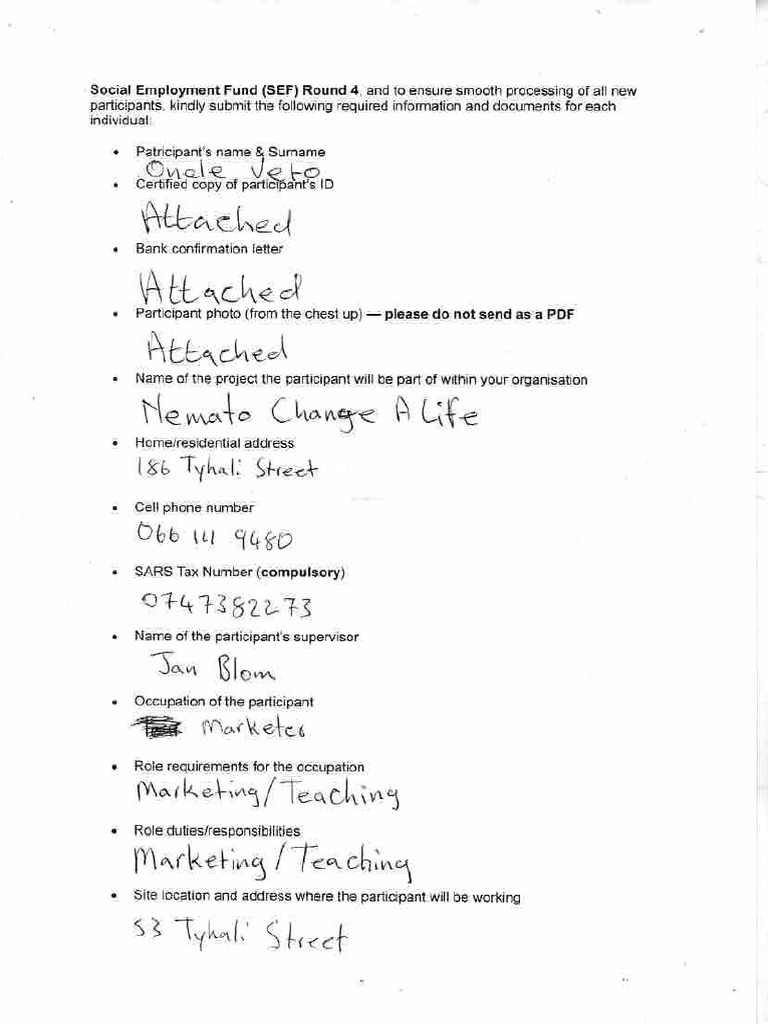 Social Employment Fund (SEF) Round 4, and to ensure smooth processing of all new
participants, kindly submit the following required information and documents for each
individual:
• Patricipant's name & Surname
Onele Veto
• Certified copy of participant's ID
Attached
• Bank confirmation letter
Attached
• Participant photo (from the chest up) — please do not send as a PDF
Attached
• Name of the project the participant will be part of within your organisation
Nemato Change A Life
• Home/residential address
186 Tyhali Street
• Cell phone number
066 141 9480
• SARS Tax Number (compulsory)
0747382273
• Name of the participant's supervisor
Jan Blom
• Occupation of the participant
Marketer
• Role requirements for the occupation
Marketing/Teaching
• Role duties/responsibilities
Marketing/Teaching
• Site location and address where the participant will be working
53 Tyhali Street